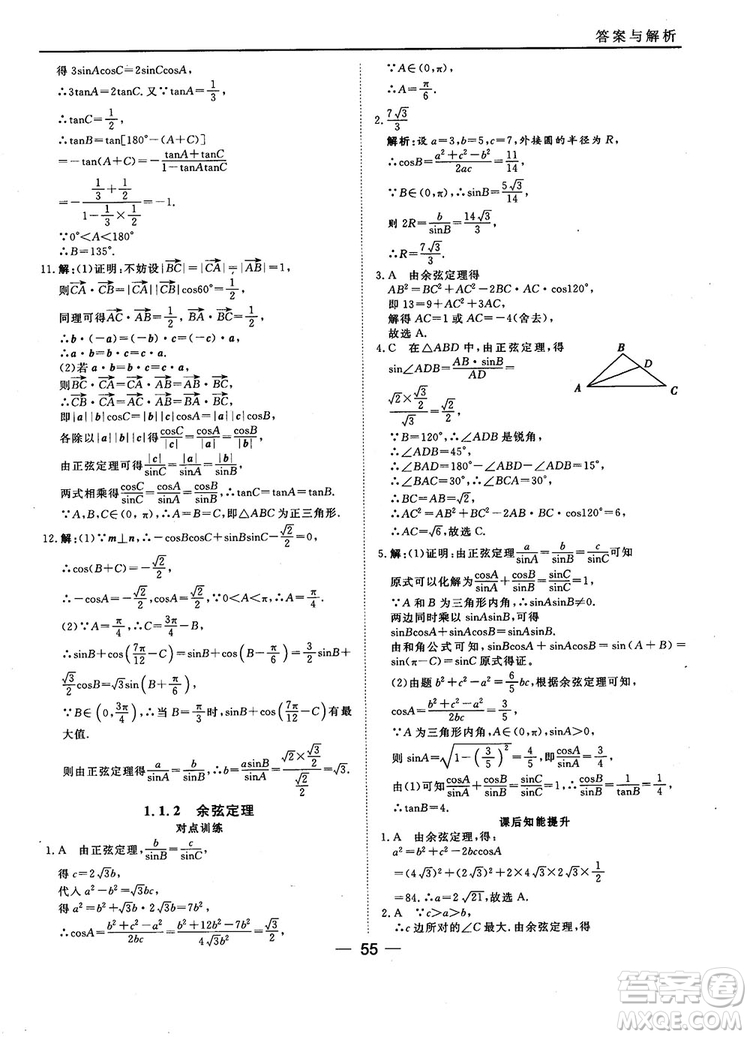 答案与解析
得 3sinAcosC=2sinCcosA,
∴3tanA=2tanC.又∵tanA=1/3,
∴tanC=1/2.
∴tanB=tan[180°-(A+C)]
=-tan(A+C)=-(tanA+tanC)/(1-tanAtanC)
=-(1/3+1/2)/(1-1/3×1/2)=-1.
∵0°<A<180°
∴B=135°.
11.解:(1)证明:不妨设|BC|=|CA|=|AB|=1,
则CA·CB=|CA||CB|cos60°=1/2.
同理可得AC·AB=1/2,BC·BA=1/2.
∴b·(-a)=(-b)·c=(-c)·a.
∴a·b=b·c=c·a.
(2)若a·b=b·c=c·a
则BC·CA=CA·AB=AB·BC.
∴CB·CA=AC·AB=BA·BC.
即|a||b|cosC=|b||c|cosA=|c||a|cosB,
各除以|a||b||c|得cosC/|c|=cosA/|a|=cosB/|b|,
由正弦定理可得|c|/sinC=|a|/sinA=|b|/sinB,
两式相乘得cosC/sinC=cosA/sinA=cosB/sinB,∴tanC=tanA=tanB.
∵A,B,C∈(0,π),∴A=B=C,即△ABC为正三角形.
12.解:(1)∵m⊥n,∴-cosBcosC+sinBsinC-√2/2=0,
∴cos(B+C)=-√2/2,
∴-cosA=-√2/2,∴cosA=√2/2,∵0<A<π,∴A=π/4.
(2)∵A=π/4,∴B+C=3π/4,
∴sinB+cos(7π/12-C)=sinB+cos(B-π/6)=
3/2sinB+√3/2cosB=√3sin(B+π/6),
∵B∈(0,3π/4),∴当B=π/3时,sinB+cos(7π/12-C)有最
大值.
则由正弦定理得a/sinA=b/sinB,∴b=asinB/sinA=(√2×√3/2)/(√2/2)=√3.
1.1.2 余弦定理
对点训练
1.A 由正弦定理,b/sinB=c/sinC,
得 c=2√3b,
代入a²-b²=√3bc,
得a²-b²=√3b·2√3b=6b²,∴a²=7b².
∴cosA=(b²+c²-a²)/2bc=(b²+12b²-7b²)/4√3b²=√3/2,
∵A∈(0,π),
∴A=π/6.
2.7√3/3
解析:设a=3,b=5,c=7,外接圆的半径为R,
∴cosB=(a²+c²-b²)/2ac=11/14,
∵B∈(0,π),∴sinB=5√3/14,
则 2R=b/sinB=14√3/3,
∴R=7√3/3.
3.A 由余弦定理得
AB²=BC²+AC²-2BC·AC·cos120°,
即 13=9+AC²+3AC,
解得 AC=1或AC=-4(舍去),
故选A.
4.C 在△ABD中,由正弦定理,得
sin∠ADB=AB·sinB/AD=
(√2×√3/2)/√3=√2/2.
∵B=120°,∴∠ADB是锐角,
∴∠ADB=45°,
∴∠BAD=180°-∠B-∠ADB=15°,
∴∠BAC=30°,∴∠C=30°,
∴BC=AB=√2,
∴AC=√6,故选C.
B
D
A
C
5.解:(1)证明:由正弦定理a/sinA=b/sinB=c/sinC可知
原式可以化解为cosA/sinA+cosB/sinB=sinC/sinC=1.
∵A和B为三角形内角,∴sinAsinB≠0.
两边同时乘以sinAsinB,可得
sinBcosA+sinAcosB=sinAsinB
由和角公式可知,sinBcosA+sinAcosB=sin(A+B)
=sin(π-C)=sinC原式得证.
(2)由题b²+c²-a²=6/5bc,根据余弦定理可知,
cosA=(b²+c²-a²)/2bc=3/5.
∵A为三角形内角,A∈(0,π),sinA>0,
则 sinA=√(1-(3/5)²)=4/5,即cosA/sinA=3/4
由(1)可知cosA/sinA+cosB/sinB=sinC/sinC=1,∴cosB/sinB=1/tanB=1/4,
∴tanB=4.
课后知能提升
1.A 由余弦定理,得:
a²=b²+c²-2bccosA
=(4√3)²+(2√3)²+2×4√3×2√3×1/2
=84.∴a=2√21,故选A.
2.A ∵c>a>b,
∴c边所对的角∠C最大.由余弦定理,得
55
作业答案圈
MXQE.COM